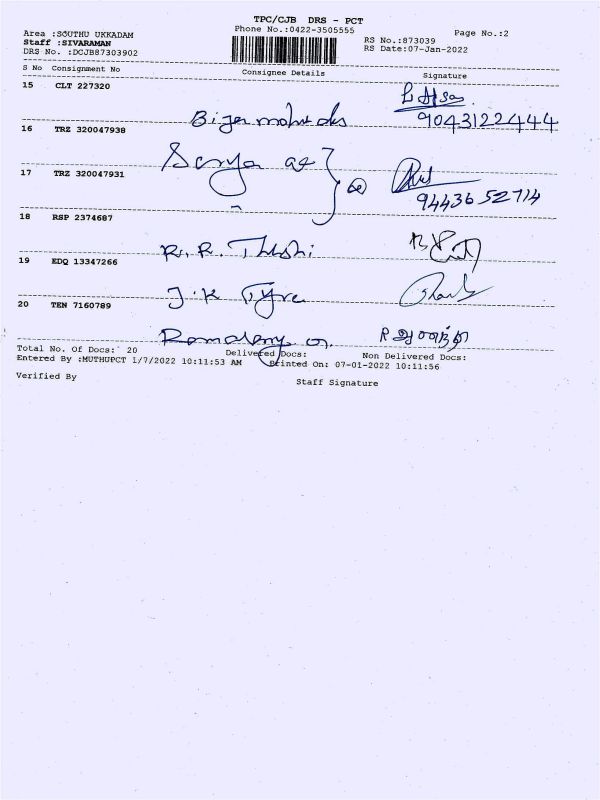 TPC/CJB DRS - PCT
Area :SOUTHU UKKADAM Phone No.:0422-3505555 Page No.:2
Staff :SIVARAMAN RS No.:873039
DRS No. :DCJB87303902 RS Date:07-Jan-2022
S No Consignment No Consignee Details Signature
15 CLT 227320
9043122444
16 TRZ 320047938
Surya
17 TRZ 320047931
94436 52714
18 RSP 2374687
R. R.
19 EDQ 13347266
J. K Tyre
20 TEN 7160789
R ஆனந்தி
Total No. Of Docs: 20 Delivered Docs: Non Delivered Docs:
Entered By :MUTHUPCT 1/7/2022 10:11:53 AM Printed On: 07-01-2022 10:11:56
Verified By Staff Signature